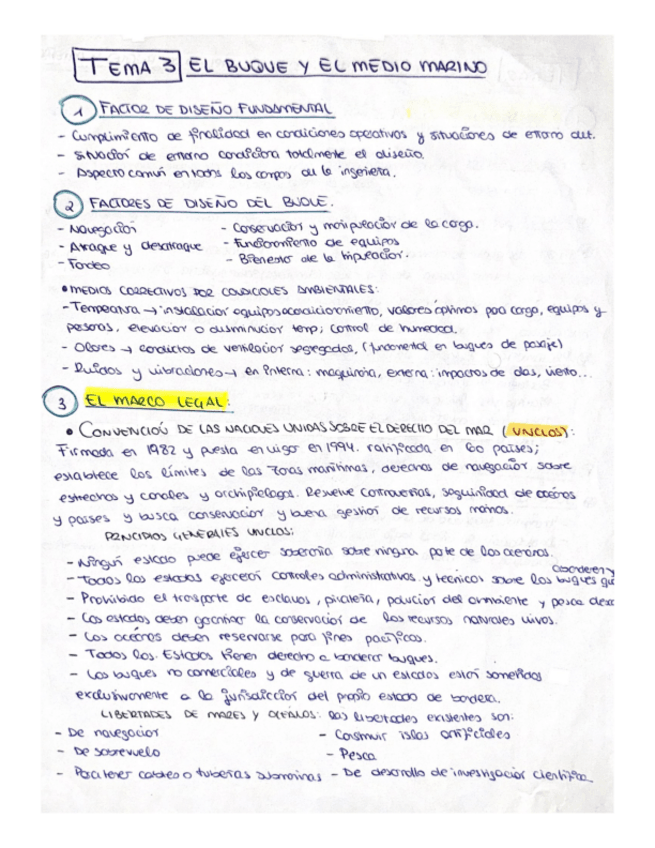 TEMA 3 EL BUQUE Y EL MEDIO MARINO
1 FACTOR DE DISEÑO FUNDAMENTAL
- Cumplimiento de finalidad en condiciones operativas y situaciones de entorno dut.
- Situación de entorno condiciona totalmente el diseño
- Aspecto común en todos los campos de la ingeniería.
2 FACTORES DE DISEÑO DEL BUQUE.
- Navegación - Conservación y manipulación de la carga.
- Atraque y desatraque - Funcionamiento de equipos
- Fondeo - Bienestar de la tripulación.
• MEDIOS CORRECTIVOS POR CONDICIONES AMBIENTALES:
- Temperatura → instalación equipos acondicionamiento, valores óptimos para carga, equipos y
personas, elevación o disminución temp, control de humedad.
- Olores → conductos de ventilación segregados, (fundamental en buques de pasaje)
- Ruidos y vibraciones → en interna: maquinaria, externa: impactos de olas, viento...
3 EL MARCO LEGAL:
• CONVENCIÓN DE LAS NACIONES UNIDAS SOBRE EL DERECHO DEL MAR (UNCLOS):
Firmada en 1982 y puesta en vigor en 1994. ratificada en 60 países;
establece los límites de las zonas marítimas, derechos de navegación sobre
estrechos y canales y archipiélagos. Resuelve controversias, seguridad de océanos
y países y busca conservación y buena gestión de recursos marinos.
PRINCIPIOS GENERALES UNCLOS:
- Ningún estado puede ejercer soberanía sobre ninguna parte de los océanos.
abanderen y
- Todos los estados ejercerán controles administrativos y técnicos sobre los buques qu
- Prohibido el transporte de esclavos, piratería, polución del ambiente y pesca desc
- Los estados deben garantizar la conservación de los recursos naturales vivos.
- Los océanos deben reservarse para fines pacíficos.
- Todos los Estados tienen derecho a banderar buques.
- Los buques no comerciales y de guerra de un estados están sometidos
exclusivamente a la jurisdicción del propio estado de bandera.
LIBERTADES DE MARES Y OCÉANOS: las libertades existentes son:
- De navegación - Construir islas artificiales
- De sobrevuelo - Pesca
- Para tener cables o tuberías submarinas - De desarrollo de investigación científica